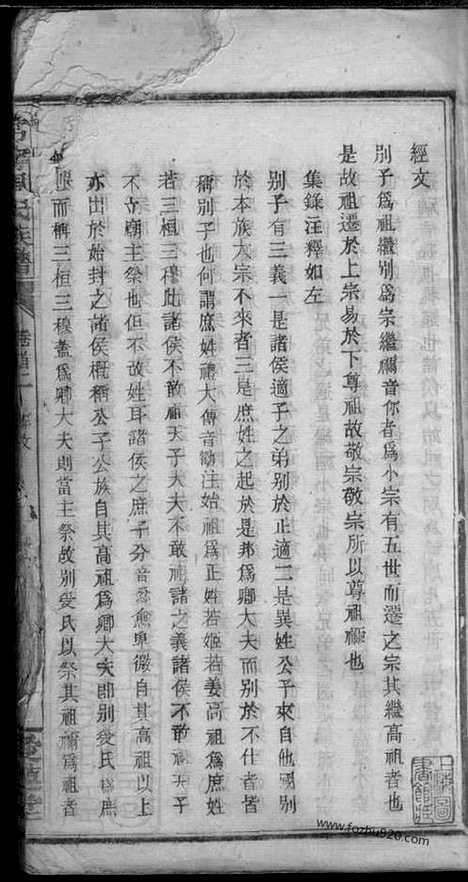 經文
別子爲祖繼別爲宗繼禰音你者爲小宗有五世而遷之宗其繼高祖者也
是故祖遷於上宗易於下尊祖故敬宗敬宗所以尊祖禰也
集錄注釋如左
別子有三義一是諸侯適子之弟別於正適二是異姓公子來自他國別
於本族大宗不來者三是庶姓之起於是邦爲卿大夫而別於不仕者皆
稱別子也何謂庶姓禮大傳音勛注始祖爲正姓若姬若姜高祖爲庶姓
若三桓三穆此諸侯不敢祖天子大夫不敢祖諸之義諸侯不敢祖天子
不立朝主祭也但不改姓耳諸侯之庶子分音忿愈卑微自其高祖以上
亦出於始封之諸侯槪稱公子公族自其高祖爲卿大夫即別受氏爲庶
姓而稱三桓三穆蓋爲卿大夫則當主祭故別受氏以祭其祖禰爲祖者
氏族譜
卷首一
上海圖書館藏
www.fozhu920.com